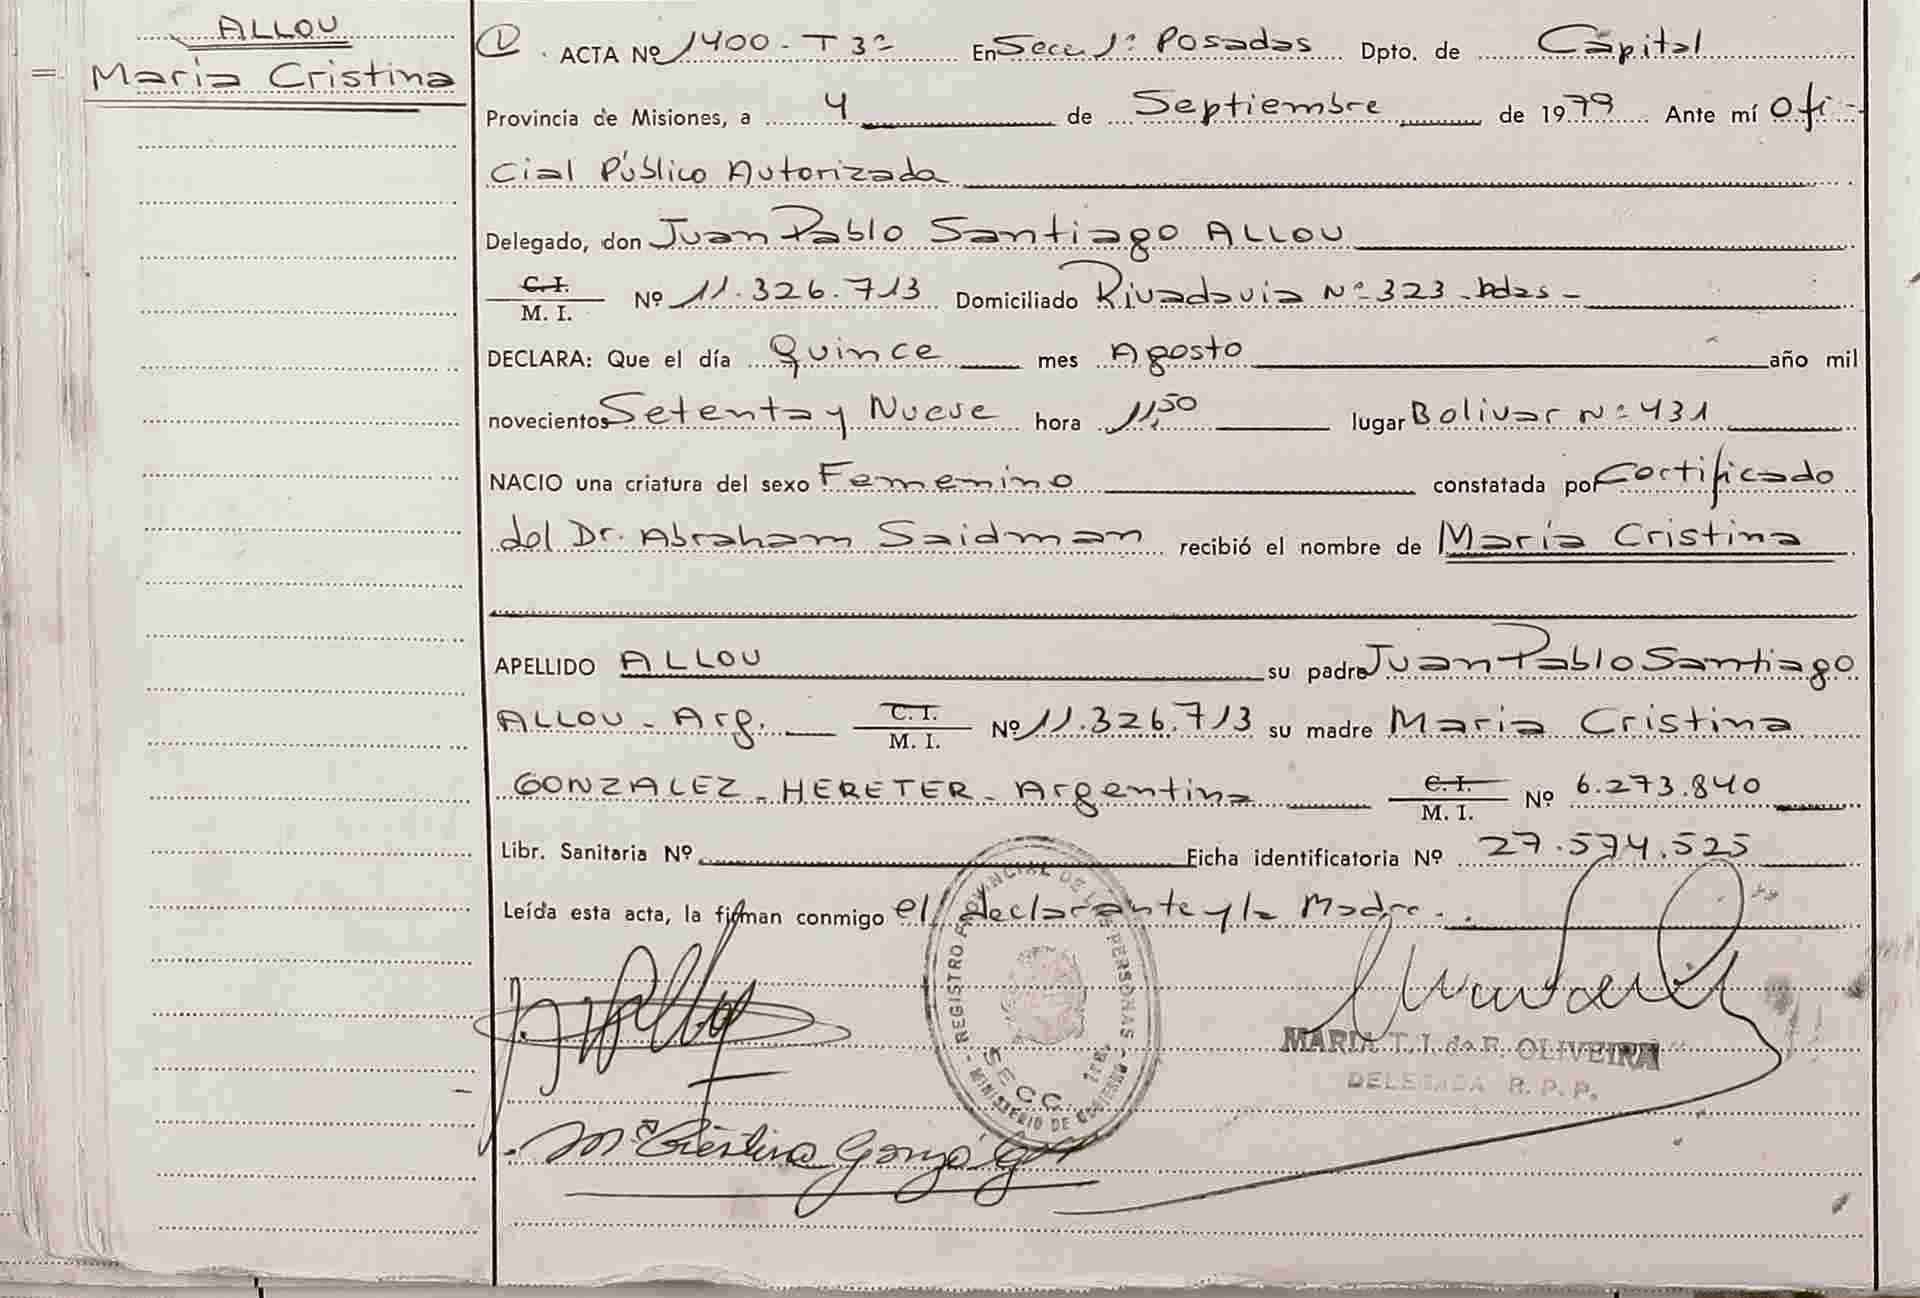 ALLOU
= María Cristina
ACTA Nº 1400 - T 3º En Secc. 1ª Posadas Dpto. de Capital
Provincia de Misiones, a 4 de Septiembre de 1979 Ante mí Ofi-
cial Público Autorizada
Delegado, don Juan Pablo Santiago ALLOU
C.I. M. I. Nº 11.326.713 Domiciliado Rivadavia Nº 323 - Pdas -
DECLARA: Que el día Quince mes Agosto año mil
novecientos Setenta y Nueve hora 11,50 lugar Bolivar Nº 431
NACIO una criatura del sexo Femenino constatada por Certificado
del Dr. Abraham Saidman recibió el nombre de María Cristina
APELLIDO ALLOU su padre Juan Pablo Santiago
ALLOU - Arg. C. I. M. I. Nº 11.326.713 su madre María Cristina
GONZALEZ - HERETER - Argentina C.I. M. I. Nº 6.273.840
Libr. Sanitaria Nº Ficha identificatoria Nº 27.574.525
Leída esta acta, la firman conmigo el declarante y la Madre.
REGISTRO PROVINCIAL DE LAS PERSONAS - MINISTERIO DE GOBIERNO -
SECC. 1ra.
MARIA T. I. de F. OLIVEIRA
DELEGADA R. P. P.
Mª Cristina Gonzá